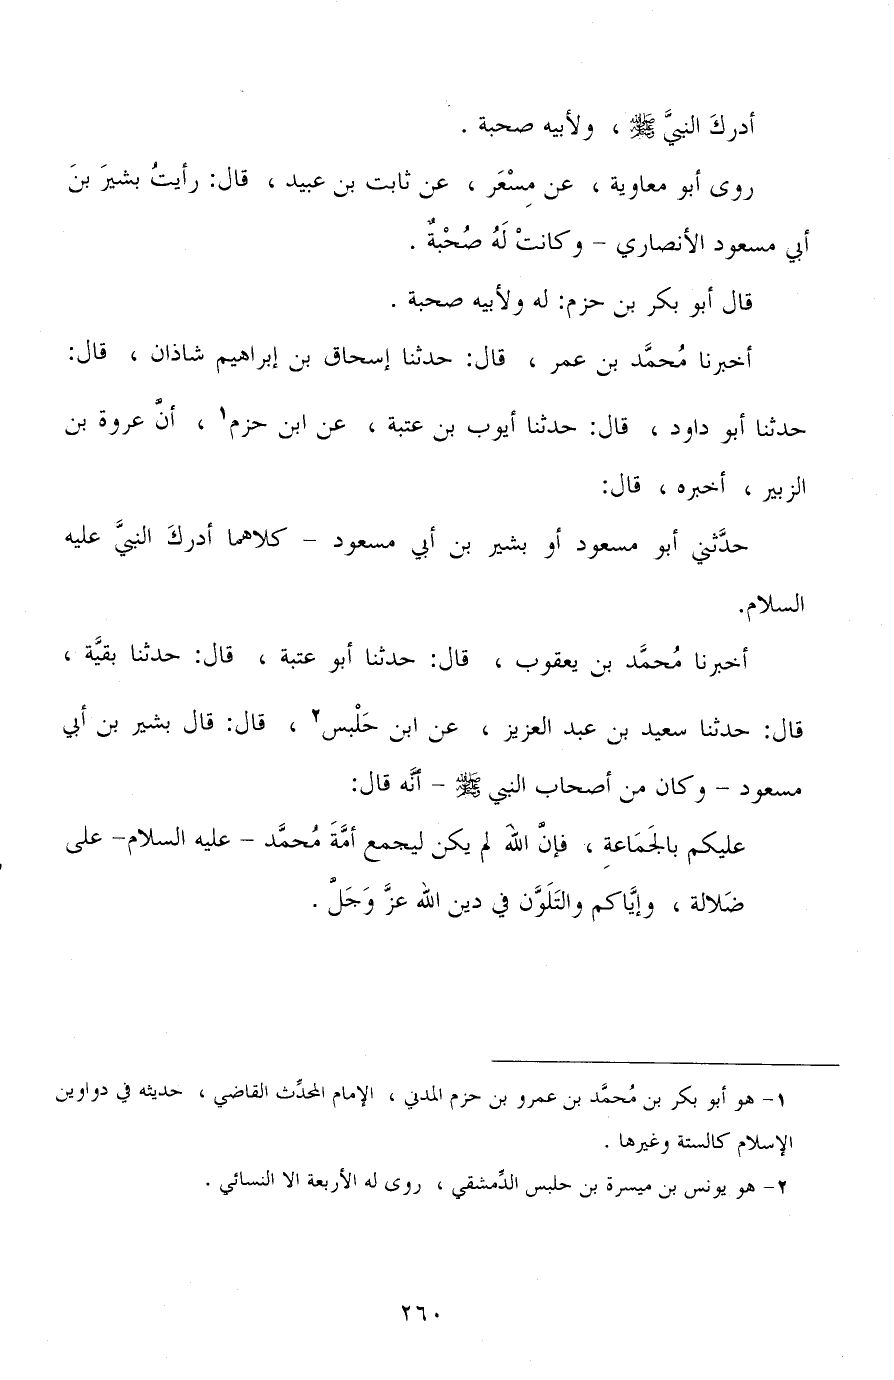 أدركَ النبيَّ ﷺ ، ولأبيه صحبة .
روى أبو معاوية ، عن مِسْعَر ، عن ثابت بن عبيد ، قال: رأيتُ بشيرَ بنَ
أبي مسعود الأنصاري – وكانتْ لَهُ صُحْبةٌ .
قال أبو بكر بن حزم: له ولأبيه صحبة .
أخبرنا مُحمَّد بن عمر ، قال: حدثنا إسحاق بن إبراهيم شاذان ، قال:
حدثنا أبو داود ، قال: حدثنا أيوب بن عتبة ، عن ابن حزم١ ، أنَّ عروة بن
الزبير ، أخبره ، قال:
حدَّثني أبو مسعود أو بشير بن أبي مسعود – كلاهما أدركَ النبيَّ عليه
السلام.
أخبرنا مُحمَّد بن يعقوب ، قال: حدثنا أبو عتبة ، قال: حدثنا بقيَّة ،
قال: حدثنا سعيد بن عبد العزيز ، عن ابن حَلْبس٢ ، قال: قال بشير بن أبي
مسعود – وكان من أصحاب النبي ﷺ – أنَّه قال:
عليكم بالجَمَاعةِ ، فإنَّ الله لم يكن ليجمع أمَّةَ مُحمَّد – عليه السلام– على
ضَلالة ، وإيَّاكم والتَلَوَّن في دين الله عزَّ وَجَلَّ .
١– هو أبو بكر بن مُحمَّد بن عمرو بن حزم المدني ، الإمام المحدِّث القاضي ، حديثه في دواوين
الإسلام كالستة وغيرها .
٢– هو يونس بن ميسرة بن حلبس الدِّمشقي ، روى له الأربعة الا النسائي .
٢٦٠